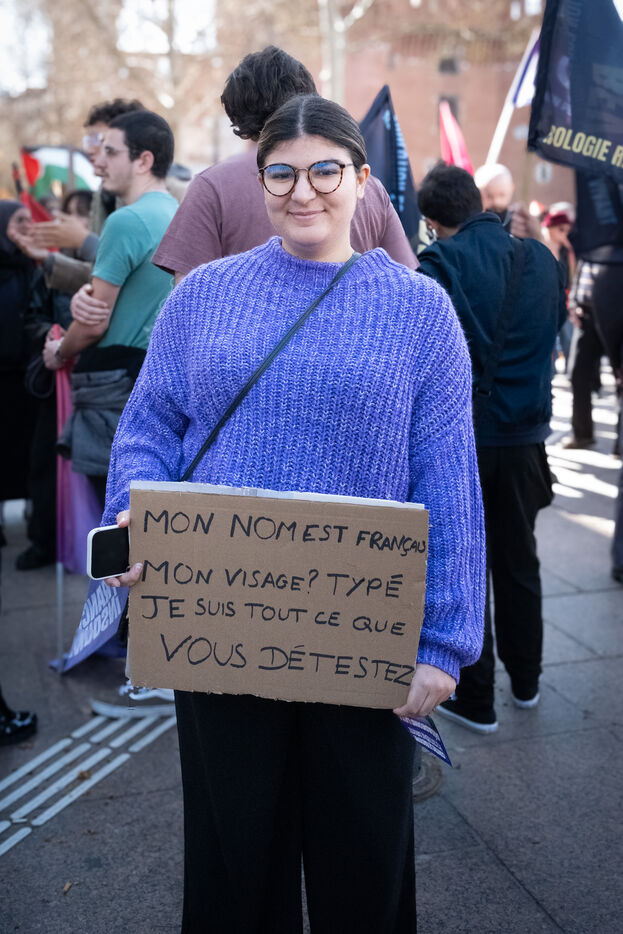 BOLOGIE R
MON NOM EST FRANÇAIS
MON VISAGE? TYPÉ
JE SUIS TOUT CE QUE
VOUS DÉTESTEZ